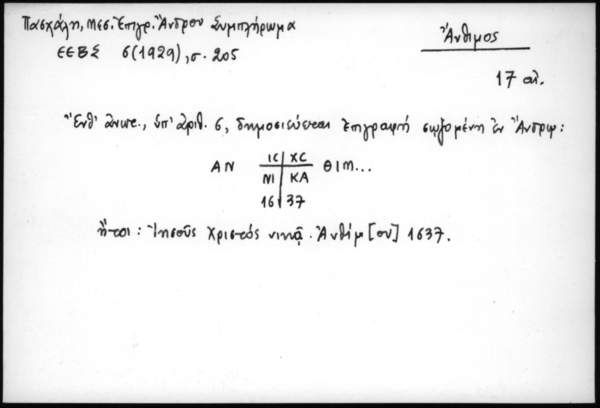 Πασχάλη, Μεσ. Ἐπιγρ. Ἄνδρου Συμπλήρωμα
ΕΕΒΣ 6 (1929), σ. 205
Ἄνθιμος
17 αἰ.
"Ἔνθ' ἀνωτ., ὑπ' ἀριθ. 6, δημοσιεύεται ἐπιγραφή σῳζομένη ἐν Ἄνδρῳ:
ΑΝ IC XC ΘΙΜ...
NI KA
16 37
ἤτοι: Ἰησοῦς Χριστός νικᾷ. Ἀνθίμ[ου] 1637.